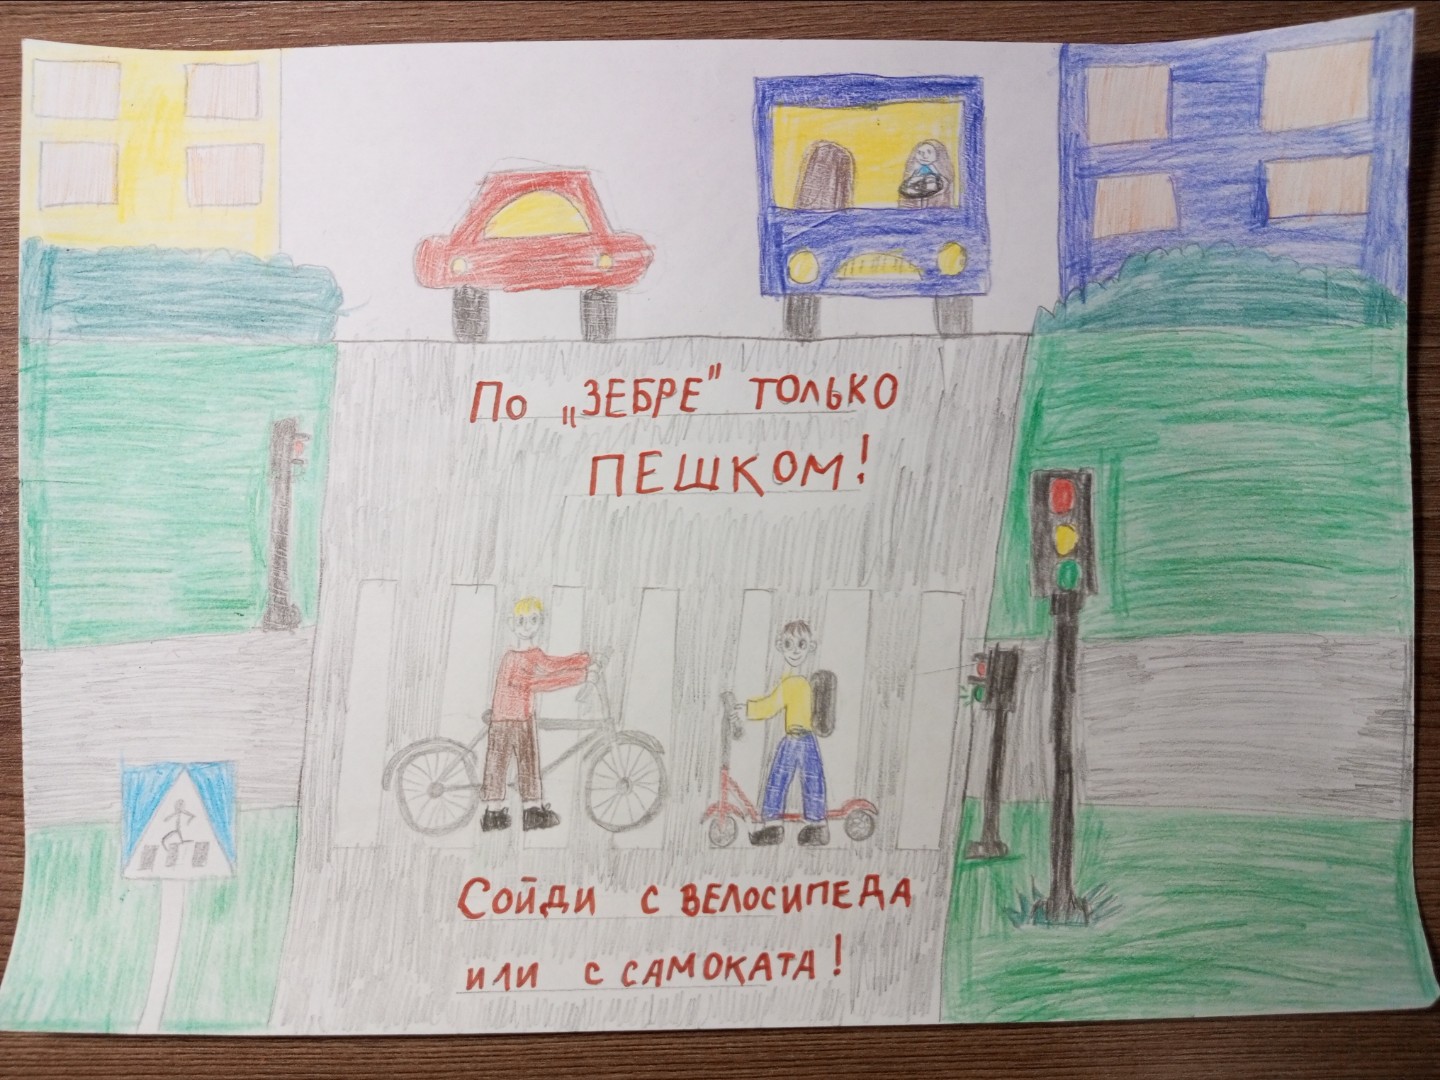 По „ЗЕБРЕ” ТОЛЬКО
ПЕШКОМ!
Сойди с велосипеда
или с самоката!